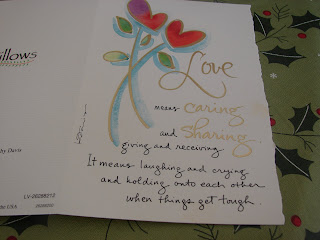 illows
by Davis
LV-06288213
USA
Love
means caring
and sharing
giving and receiving
It means laughing and crying
and holding onto each other
when things get tough.